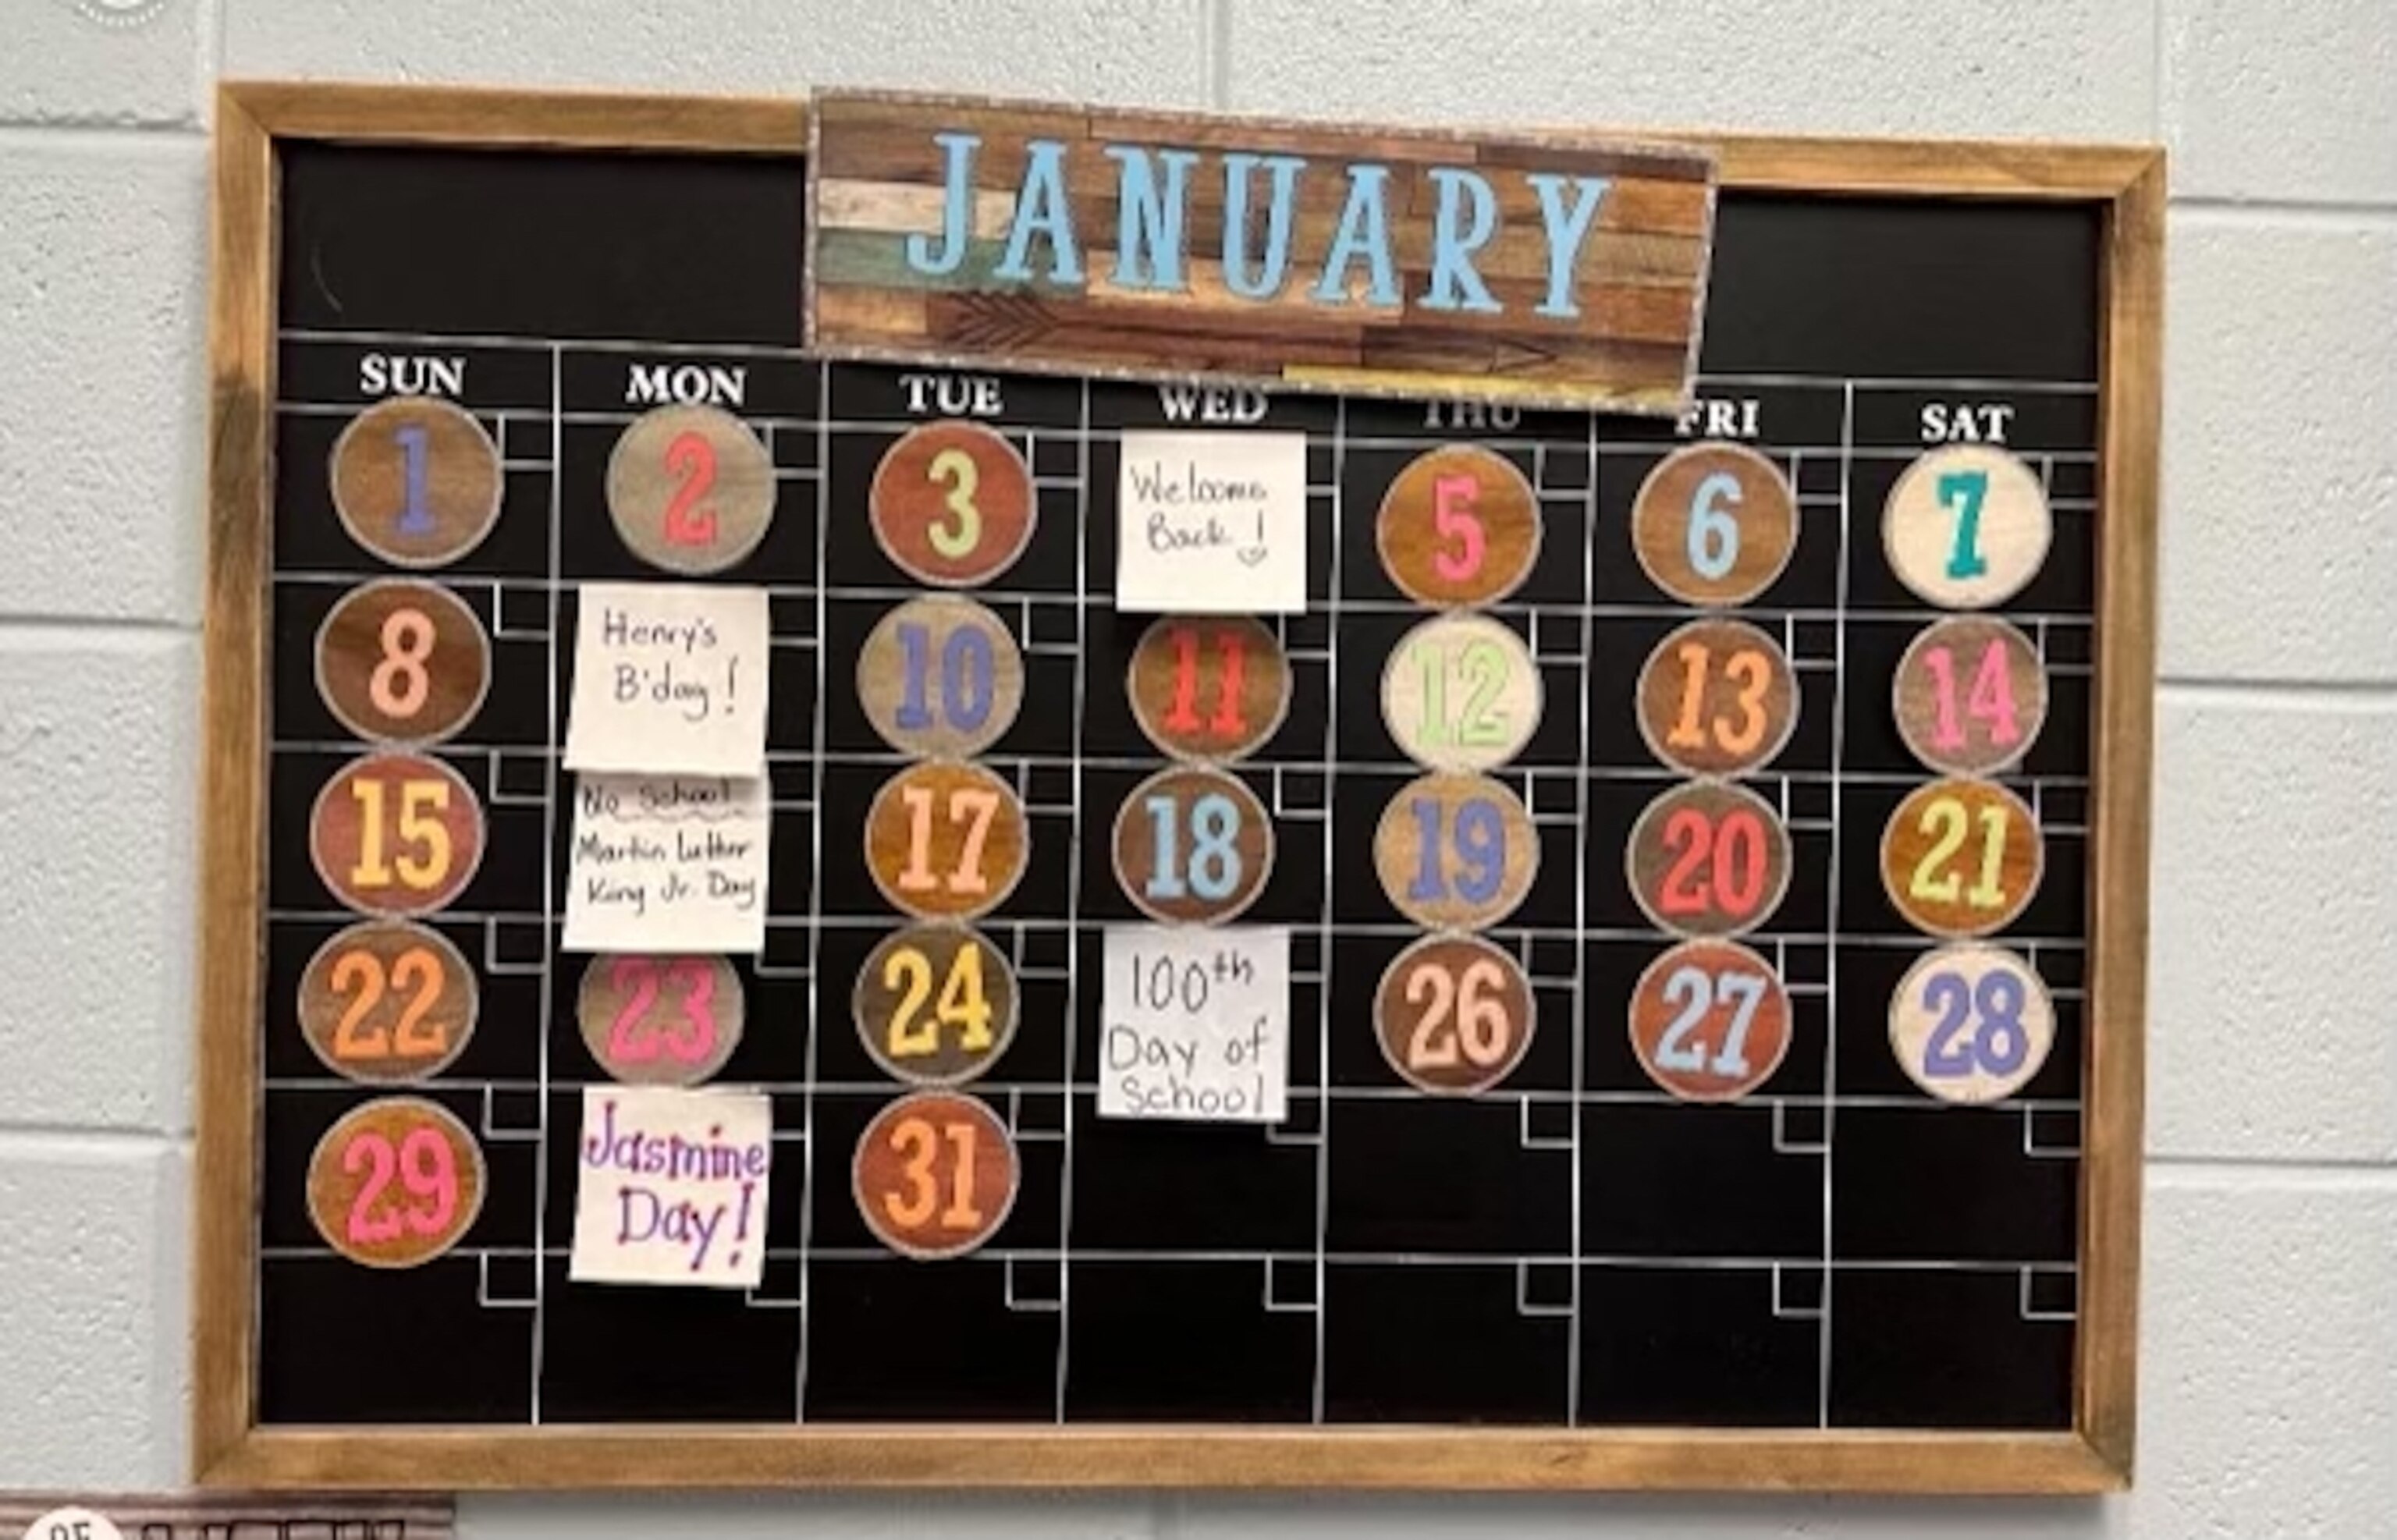 JANUARY
SUN MON TUE WED THU FRI SAT
1 2 3
Welcome
Back!
5 6 7
8
Henry's
B'day!
10 11 12 13 14
15
No School
Martin Luther
King Jr. Day
17 18 19 20 21
22 23 24
100th
Day of
School
26 27 28
29
Jasmine
Day!
31